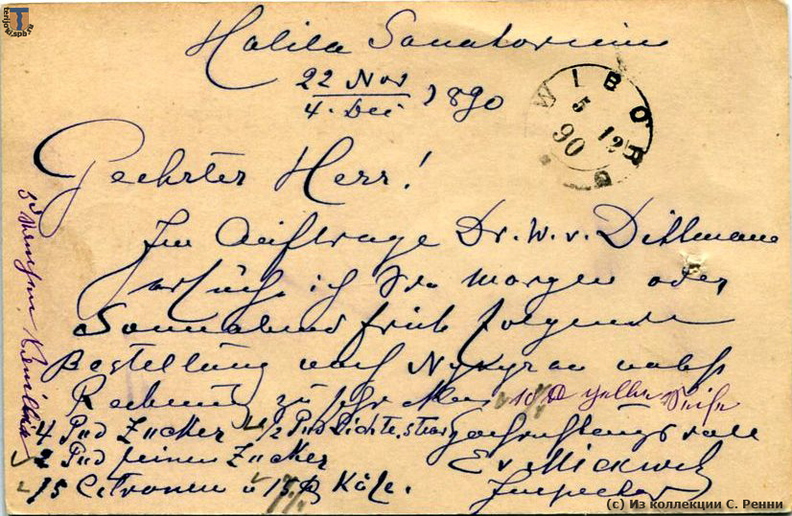 Halila Sanatorium
22 Nov
4. Dec 1890
WIBORG
5 12
90
Geehrter Herr!
Im Auftrage Dr. W. v. Dittmann
ersuche ich Sie morgen oder
Sonnabend früh folgende
Bestellung nach Nykyrka nebst
Rechnung zu schicken 10 gelbe Seife
4 Pud Zucker 1/2 Pud Lichte, Hochachtungsvoll
2 Pud feinen Zucker E v Mickwitz
15 Citronen u 15 Käse. Inspector
terijoki.spb.ru
(c) Из коллекции С. Ренни